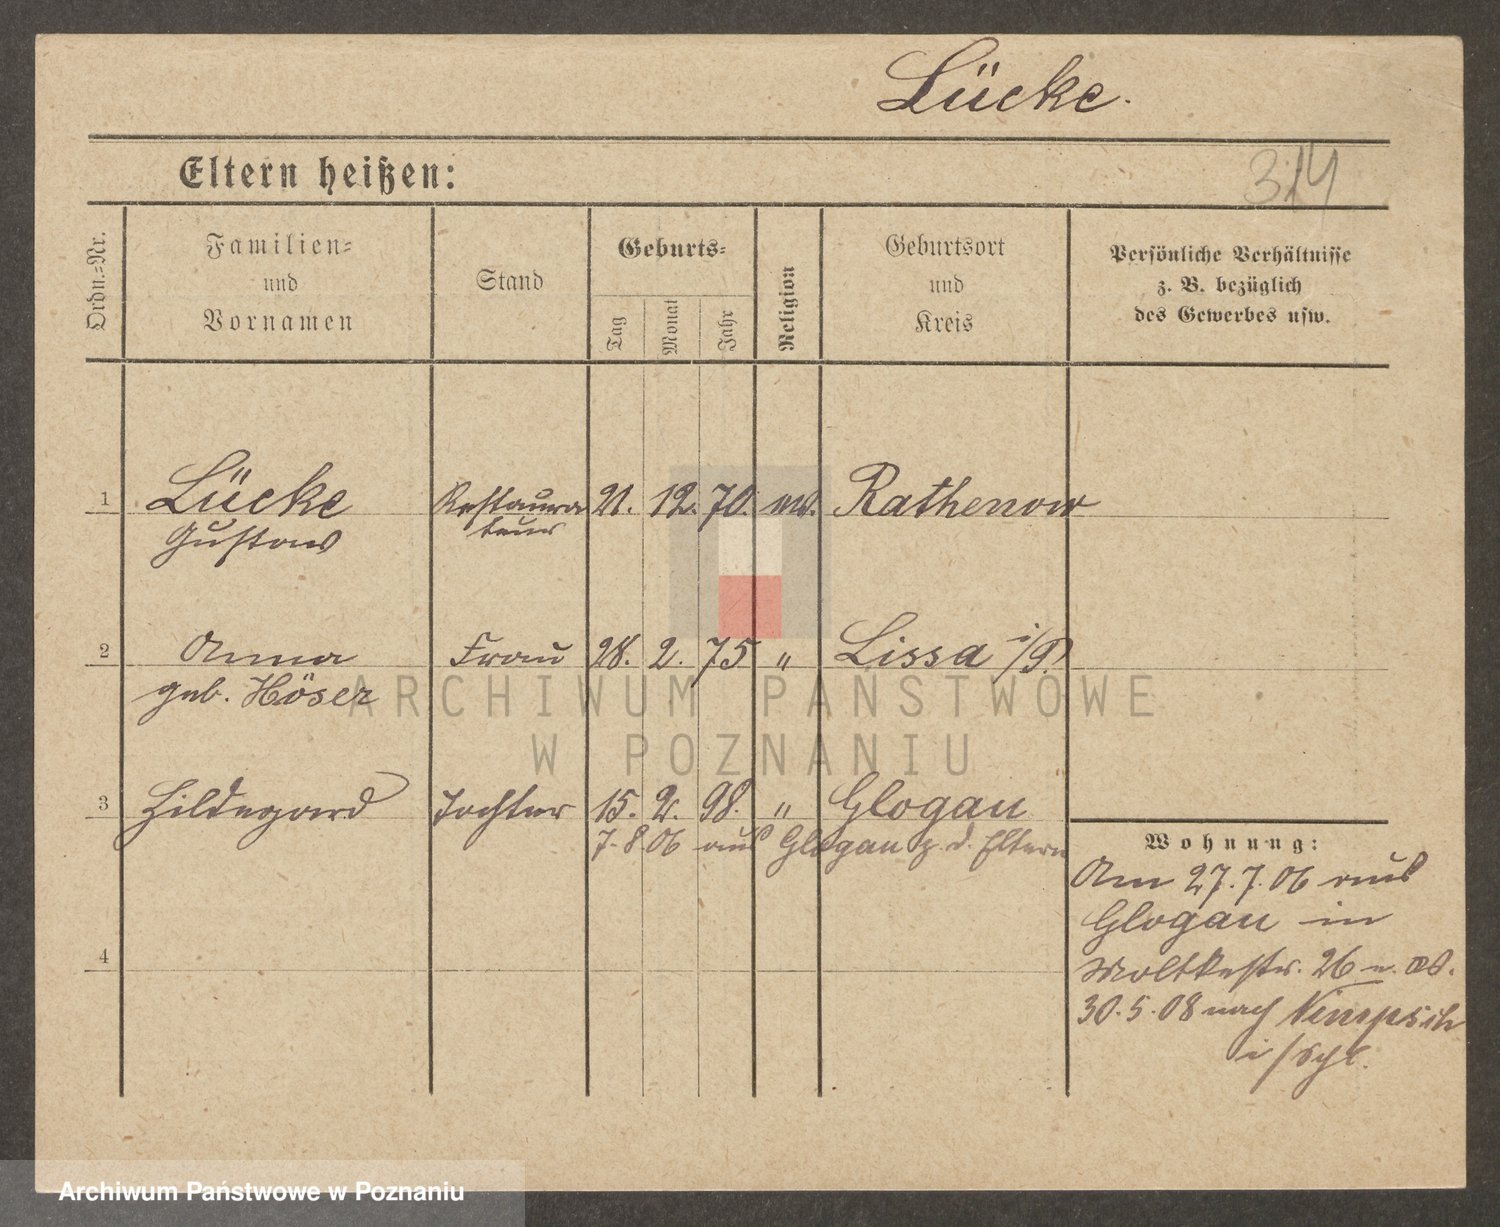 Lücke.
Eltern heißen:
314
Ordn.=Nr.
Familien=
und
Vornamen
Stand
Geburts=
Tag
Monat
Jahr
Religion
Geburtsort
und
Kreis
Persönliche Verhältnisse
z. B. bezüglich
des Gewerbes usw.
1 Lücke Restaura 21. 12. 70. ev. Rathenow
Gustav teur
2 Anna Frau 28. 2. 75 " Lissa i/P.
geb. Höser
3 Hildegard Tochter 15. 2. 98. " Glogau
7. 8 06 aus Glogau z. d. Eltern
Wohnung:
Am 27. 7. 06 aus
Glogau in
Moltkestr. 26 
30. 5. 08 nach Nimpsch
i/Schl.
4
ARCHIWUM PAŃSTWOWE
W POZNANIU
Archiwum Państwowe w Poznaniu